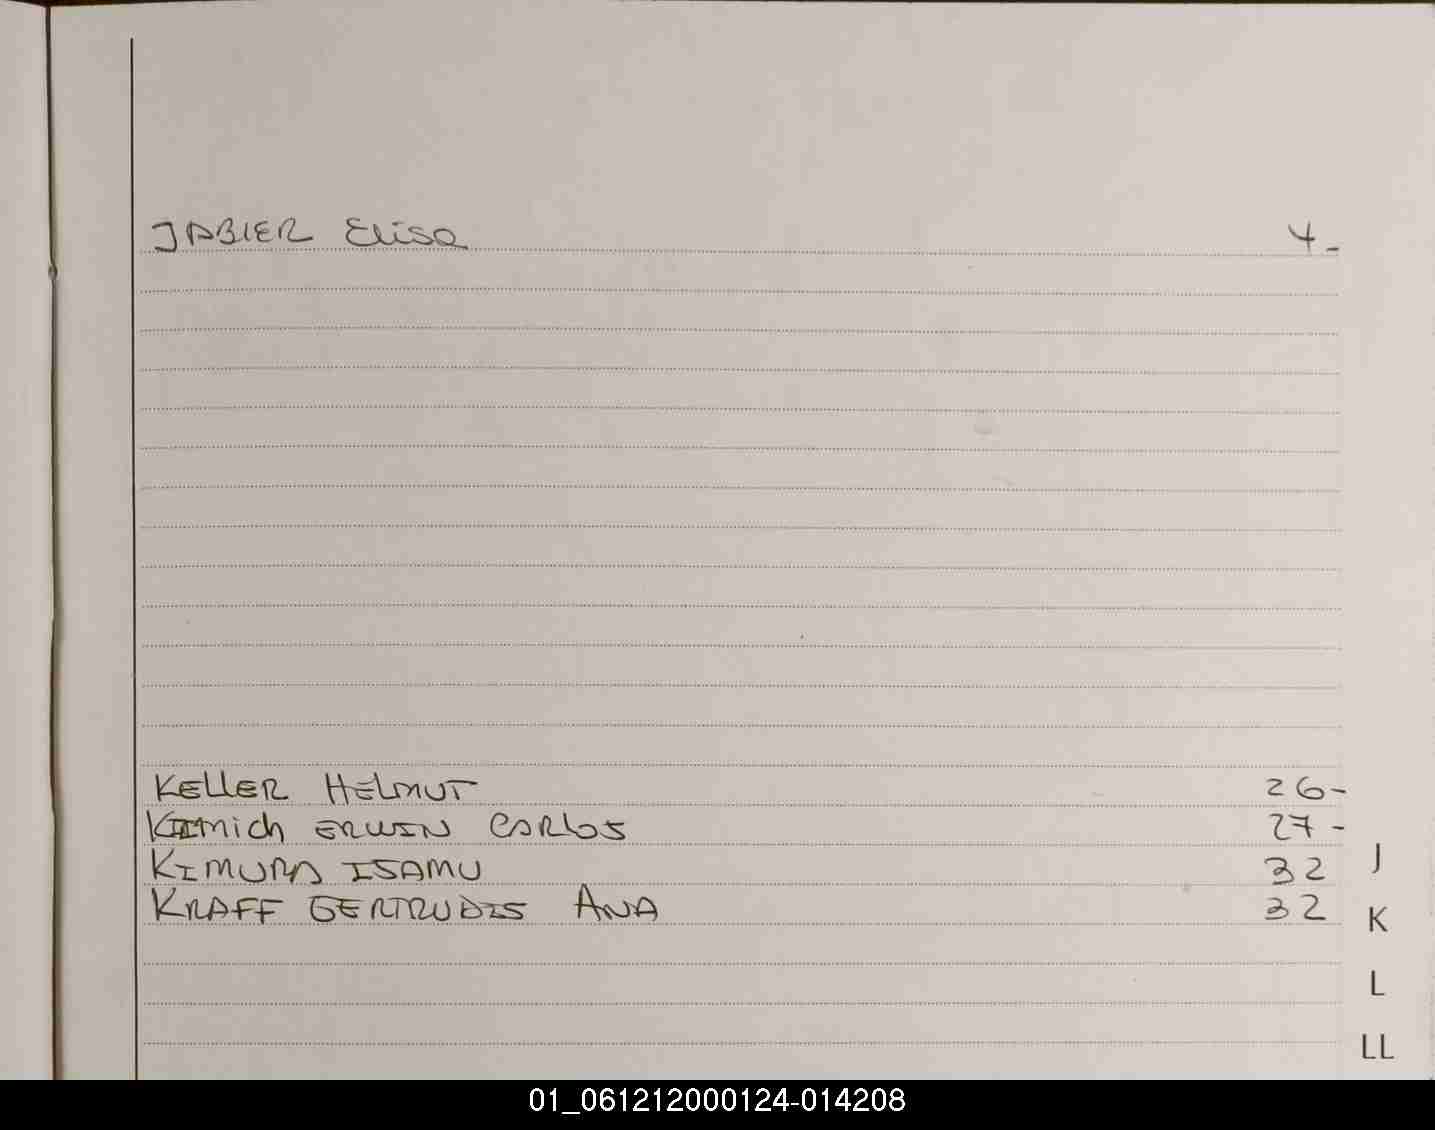 JABIER Elisa 4-
KELLER HELMUT 26-
ERWIN CARLOS 27-
KIMURA ISAMU 32
J
KRAFF GERTRUDIS ANA 32
K
L
LL
01_061212000124-014208